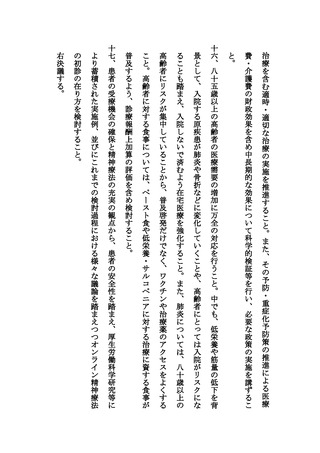 治療を含む適時・適切な治療の実施を推進すること。また、その予防・重症化予防策の推進による医療
費・介護費の財政効果を含め中長期的な効果について科学的検証等を行い、必要な政策の実施を講ずるこ
と。
十六、八十五歳以上の高齢者の医療需要の増加に万全の対応を行うこと。中でも、低栄養や筋量の低下を背
景として、入院する原疾患が肺炎や骨折などに変化していくことや、高齢者にとっては入院がリスクにな
ることも踏まえ、入院しないで済むよう在宅医療を強化すること。また、肺炎については、八十歳以上の
高齢者にリスクが集中していることから、普及啓発だけでなく、ワクチンや治療薬のアクセスをよくする
こと。高齢者に対する食事については、ペースト食や低栄養・サルコペニアに対する治療に資する食事が
普及するよう、診療報酬上加算の評価を含め検討すること。
十七、患者の受療機会の確保と精神療法の充実の観点から、患者の安全性を踏まえ、厚生労働科学研究等に
より蓄積された実施例、並びにこれまでの検討過程における様々な議論を踏まえつつオンライン精神療法
の初診の在り方を検討すること。
右決議する。